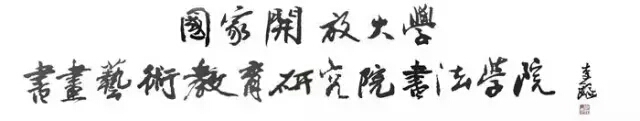 國家開放大學
書畫藝術教育研究院書法學院